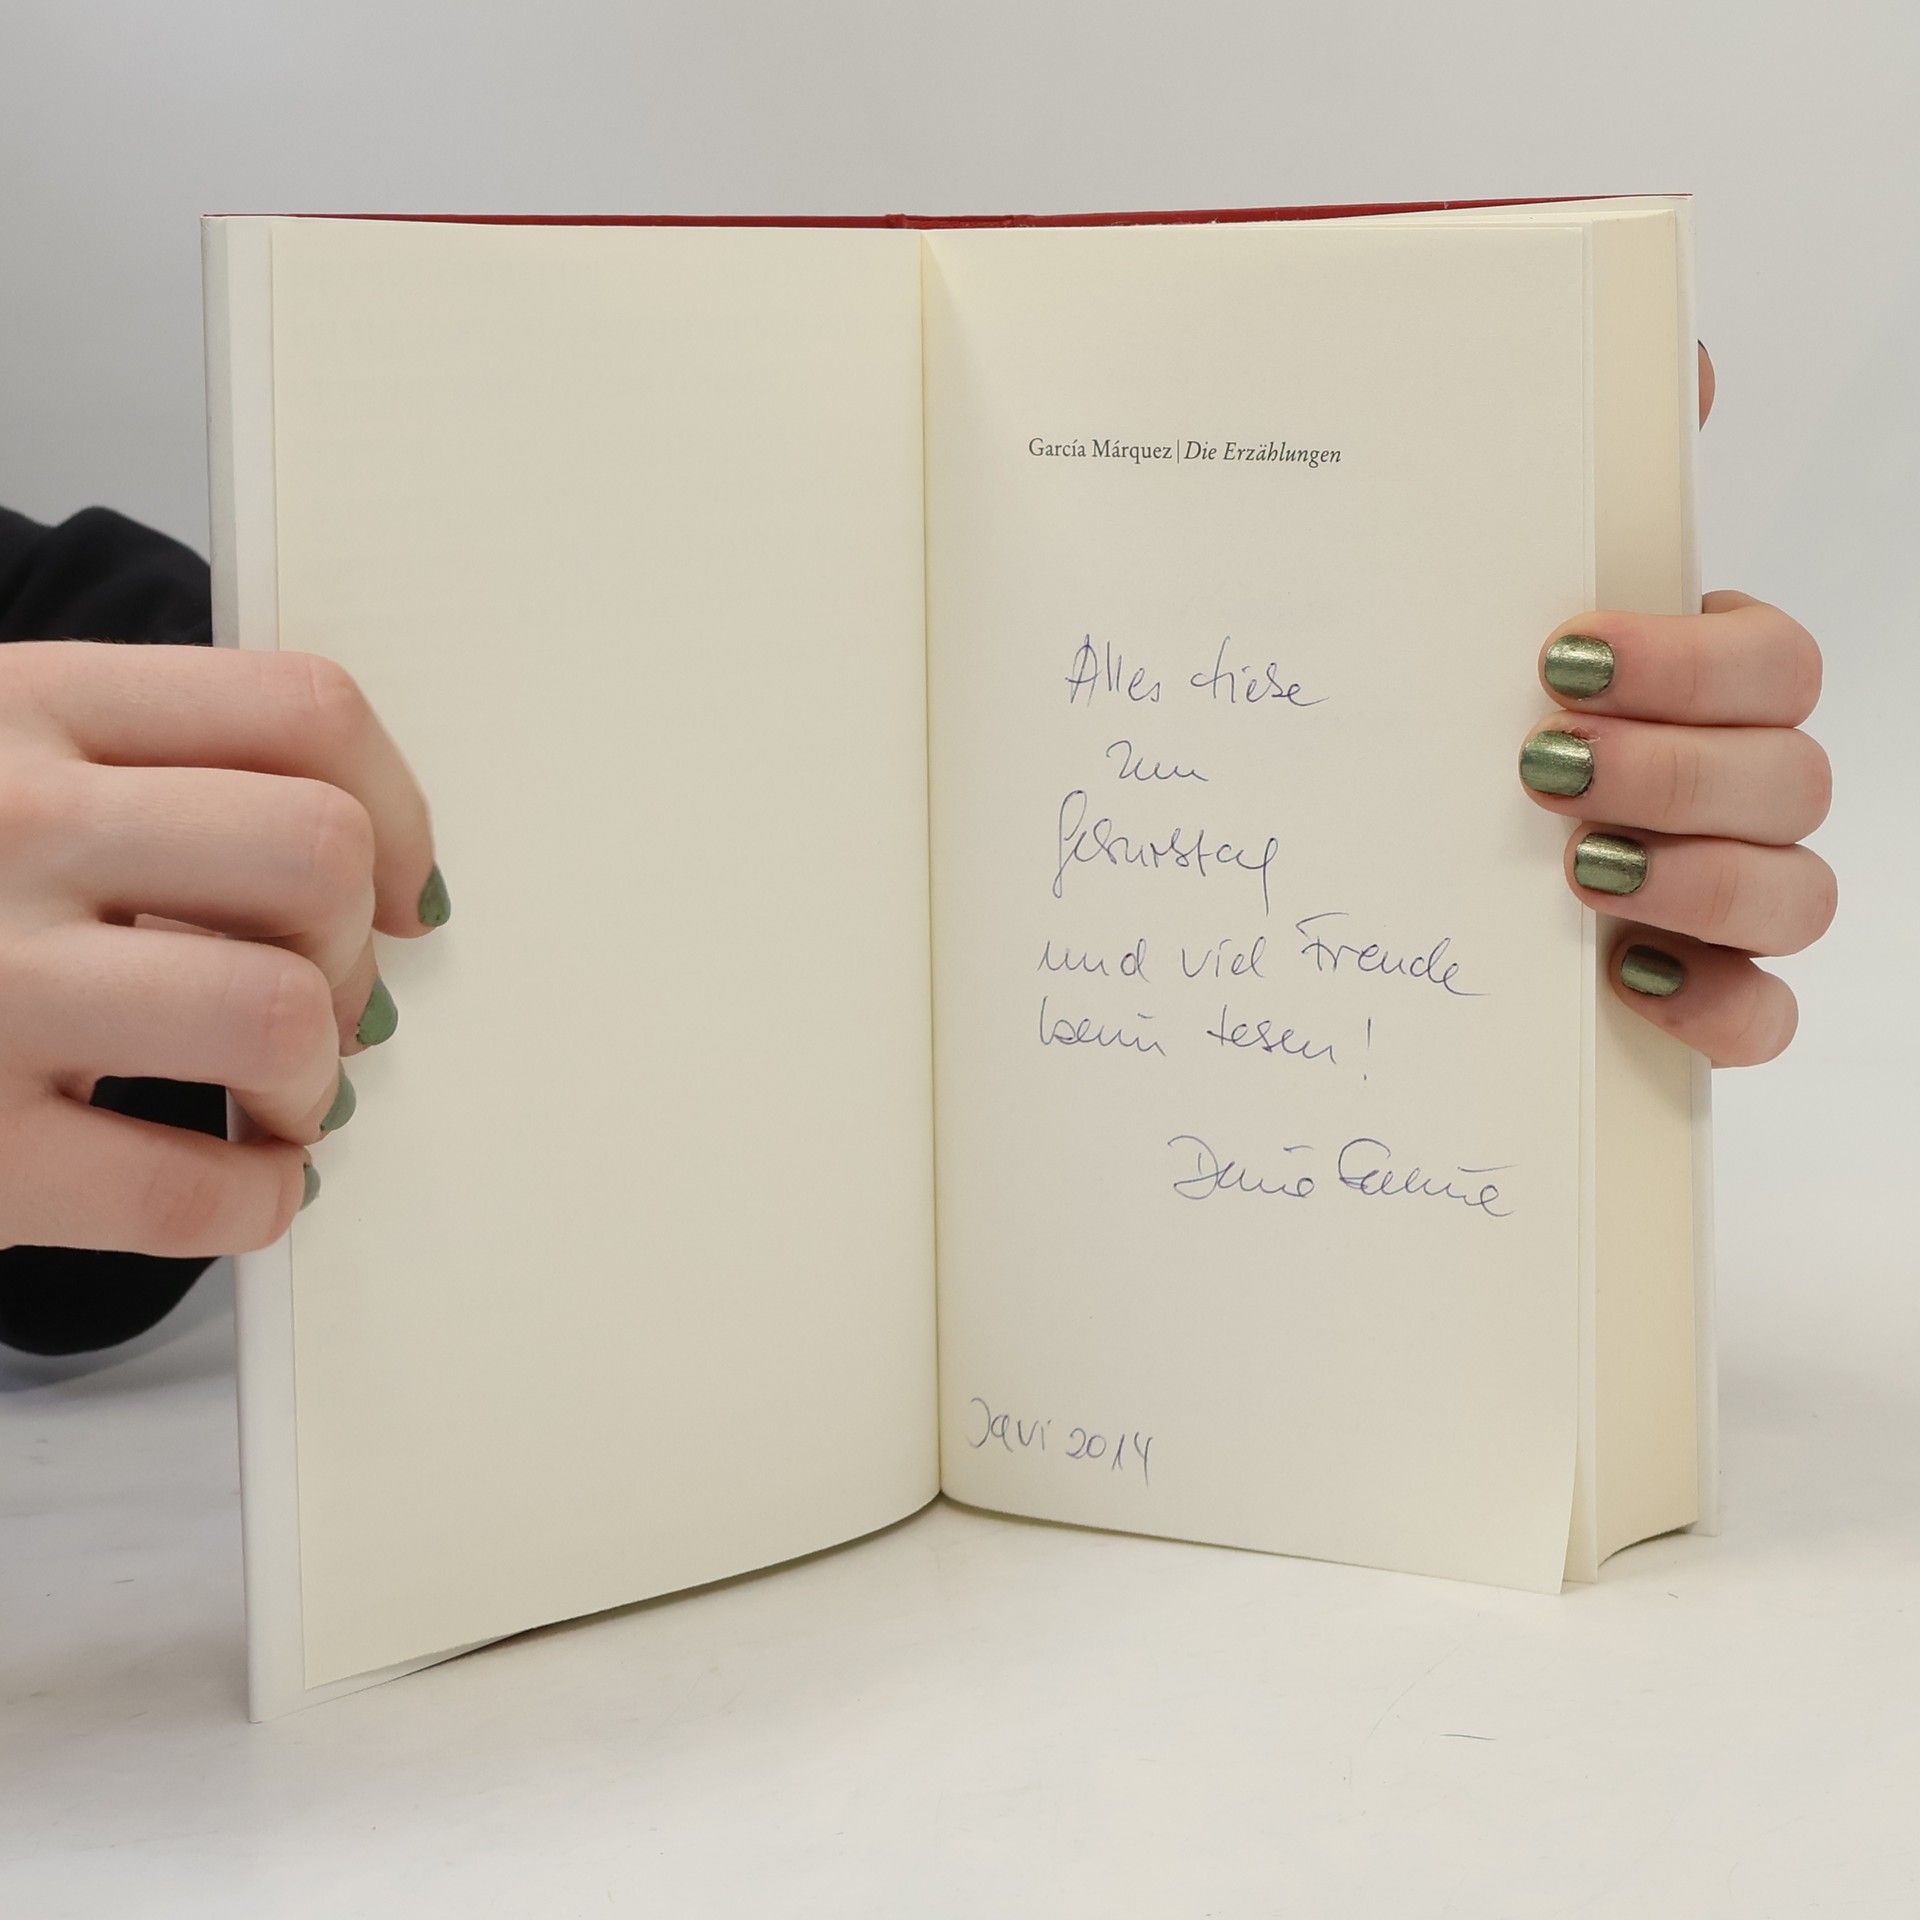 García Márquez | Die Erzählungen
Alles Liebe
zum
Geburtstag
und viel Freude
beim Lesen!
Javi 2014